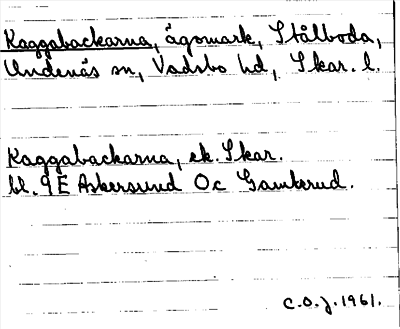 Kaggabackarna, ägomark, Stålboda,
Undenäs sn, Vadsbo hd, Skar. l.
Kaggabackarna, ek. Skar.
bl. 9E Askersund Oc Gamberud.
C.O.J. 1961.